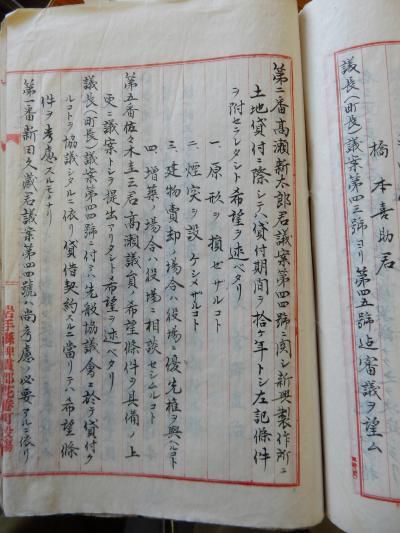 橋本喜助君
議長(町長)議案第四三號ヨリ第四五號迄審議ヲ望ム
第二番高瀬新太郎君議案第四四號ニ関シ新興製作所ニ
土地貸付ニ際シテハ貸付期間ヲ拾ヶ年トシ左記條件
ヲ附セラレタシト希望ヲ述ベタリ
一、原形ヲ損セザルコト
二、煙突ヲ設ケシメザルコト
三、建物賣却ノ場合ハ役場ニ優先権ヲ與ヘルコト
四、増築ノ場合ハ役場ニ相談セシムルコト
第五番佐々木圭三君高瀬議員ノ希望條件ヲ具備ノ上
更ニ議案トシテ提出アリタシト希望ヲ述ベタリ
議長(町長)議案第四四號ニ付テハ先般協議會ニ於テ貸付ク
ルコトヲ協議シタルニ依リ貸借契約スルニ當リテハ希望條
件ヲ考慮スルモノナリ
第一番新田久藏君議案第四四號ハ尚考慮ノ必要アルニ依リ
岩手縣稗貫郡花巻町役場